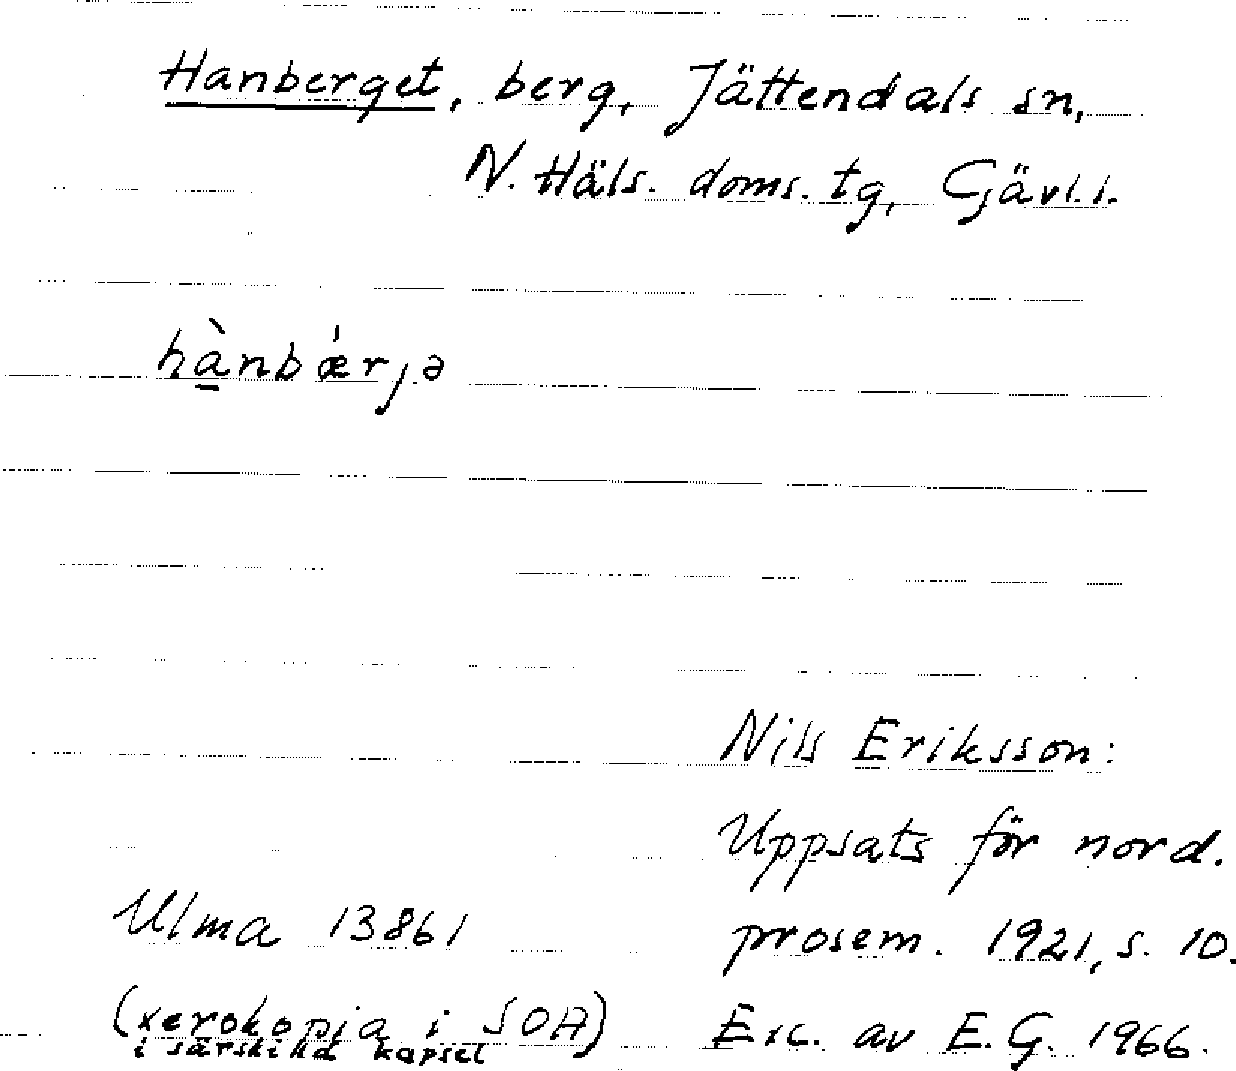 Hanberget, berg, Jättendals sn,
N. Häls. doms. tg, Gävl. l.
hа̀nbǽrjə
Nils Eriksson:
Uppsats för nord.
prosem. 1921, s. 10.
Ulma 13861
(xerokopia i SOA)
i särskild kapsel
Exc. av E. G. 1966.